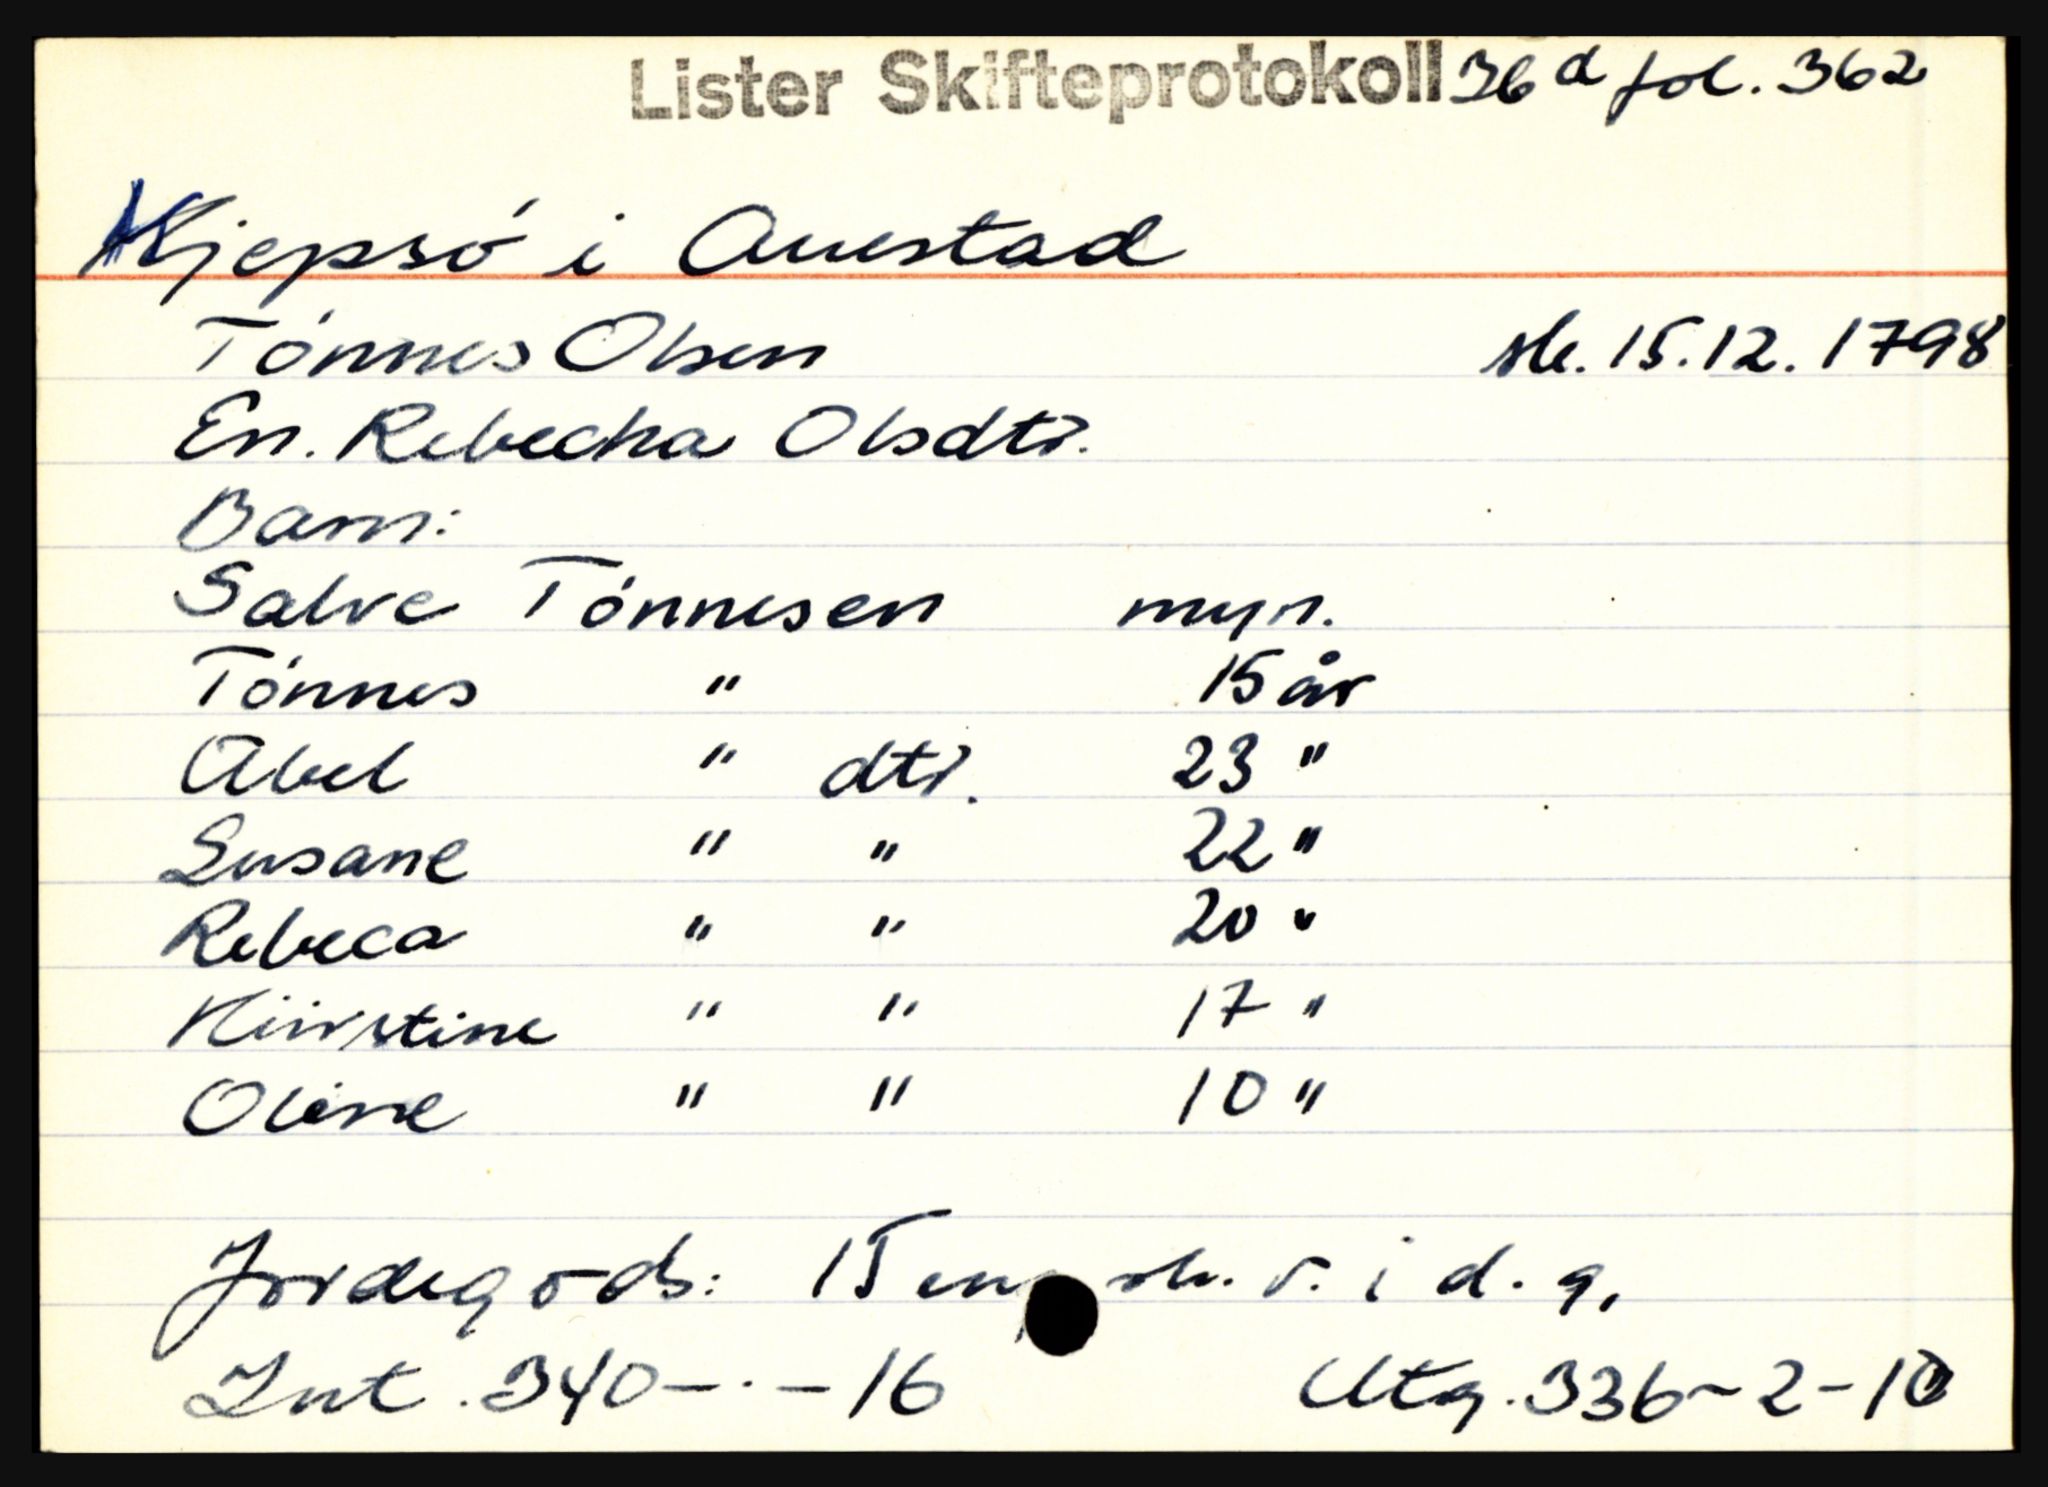 Lister Skifteprotokoll 36d fol. 362
Kjepsö i Austad
Tönnes Olsen sk. 15.12.1798
En. Rebecha Olsdtr.
Barn:
Salve Tönnesen myn.
Tönnes " 15 år
Abel " dtr. 23 "
Susane " " 22 "
Rebeca " " 20 "
Kirstine " " 17 "
Oline " " 10 "
Jordegods: 15 eng. sk. v. i d. g.
Int. 340-.-16 Utg. 336-2-10